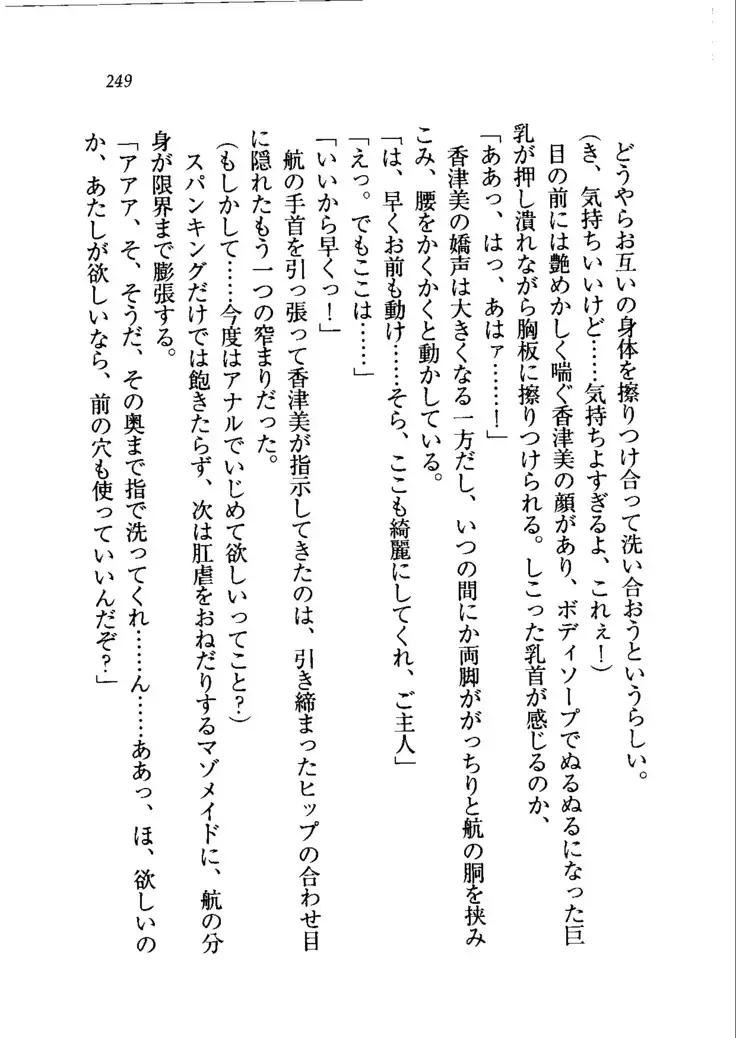 249
どうやらお互いの身体を擦りつけ合って洗い合おうというらしい。
(き、気持ちいいけど……気持ちよすぎるよ、これぇ!)
目の前には艶めかしく喘ぐ香津美の顔があり、ボディソープでぬるぬるになった巨
乳が押し潰れながら胸板に擦りつけられる。しこった乳首が感じるのか、
「ああっ、はっ、あはァ……!」
香津美の嬌声は大きくなる一方だし、いつの間にか両脚ががっちりと航の胴を挟み
こみ、腰をかくかくと動かしている。
「は、早くお前も動け……そら、ここも綺麗にしてくれ、ご主人」
「えっ。でもここは……」
「いいから早くっ!」
航の手首を引っ張って香津美が指示してきたのは、引き締まったヒップの合わせ目
に隠れたもう一つの窄まりだった。
(もしかして……今度はアナルでいじめて欲しいってこと?)
スパンキングだけでは飽きたらず、次は肛虐をおねだりするマゾメイドに、航の分
身が限界まで膨張する。
「アアア、そ、そうだ、その奥まで指で洗ってくれ……ん……ああっ、ほ、欲しいの
か、あたしが欲しいなら、前の穴も使っていいんだぞ?」